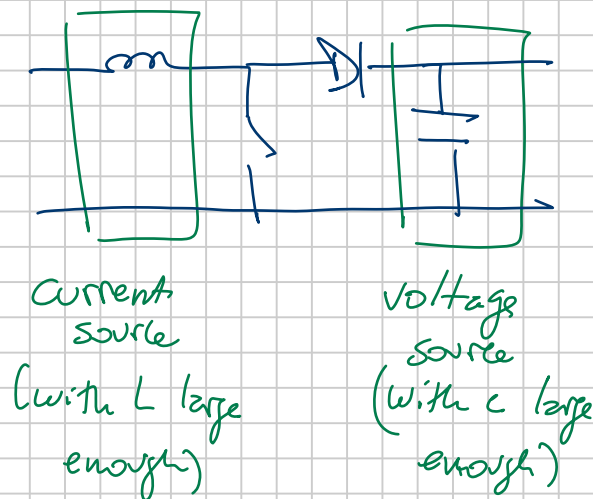 current
source
(with L large
enough)
voltage
source
(with c large
enough)